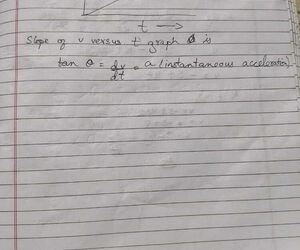 t →
slope of v versus t graph θ is
tan θ = dv/dt = a (instantaneous acceleration)